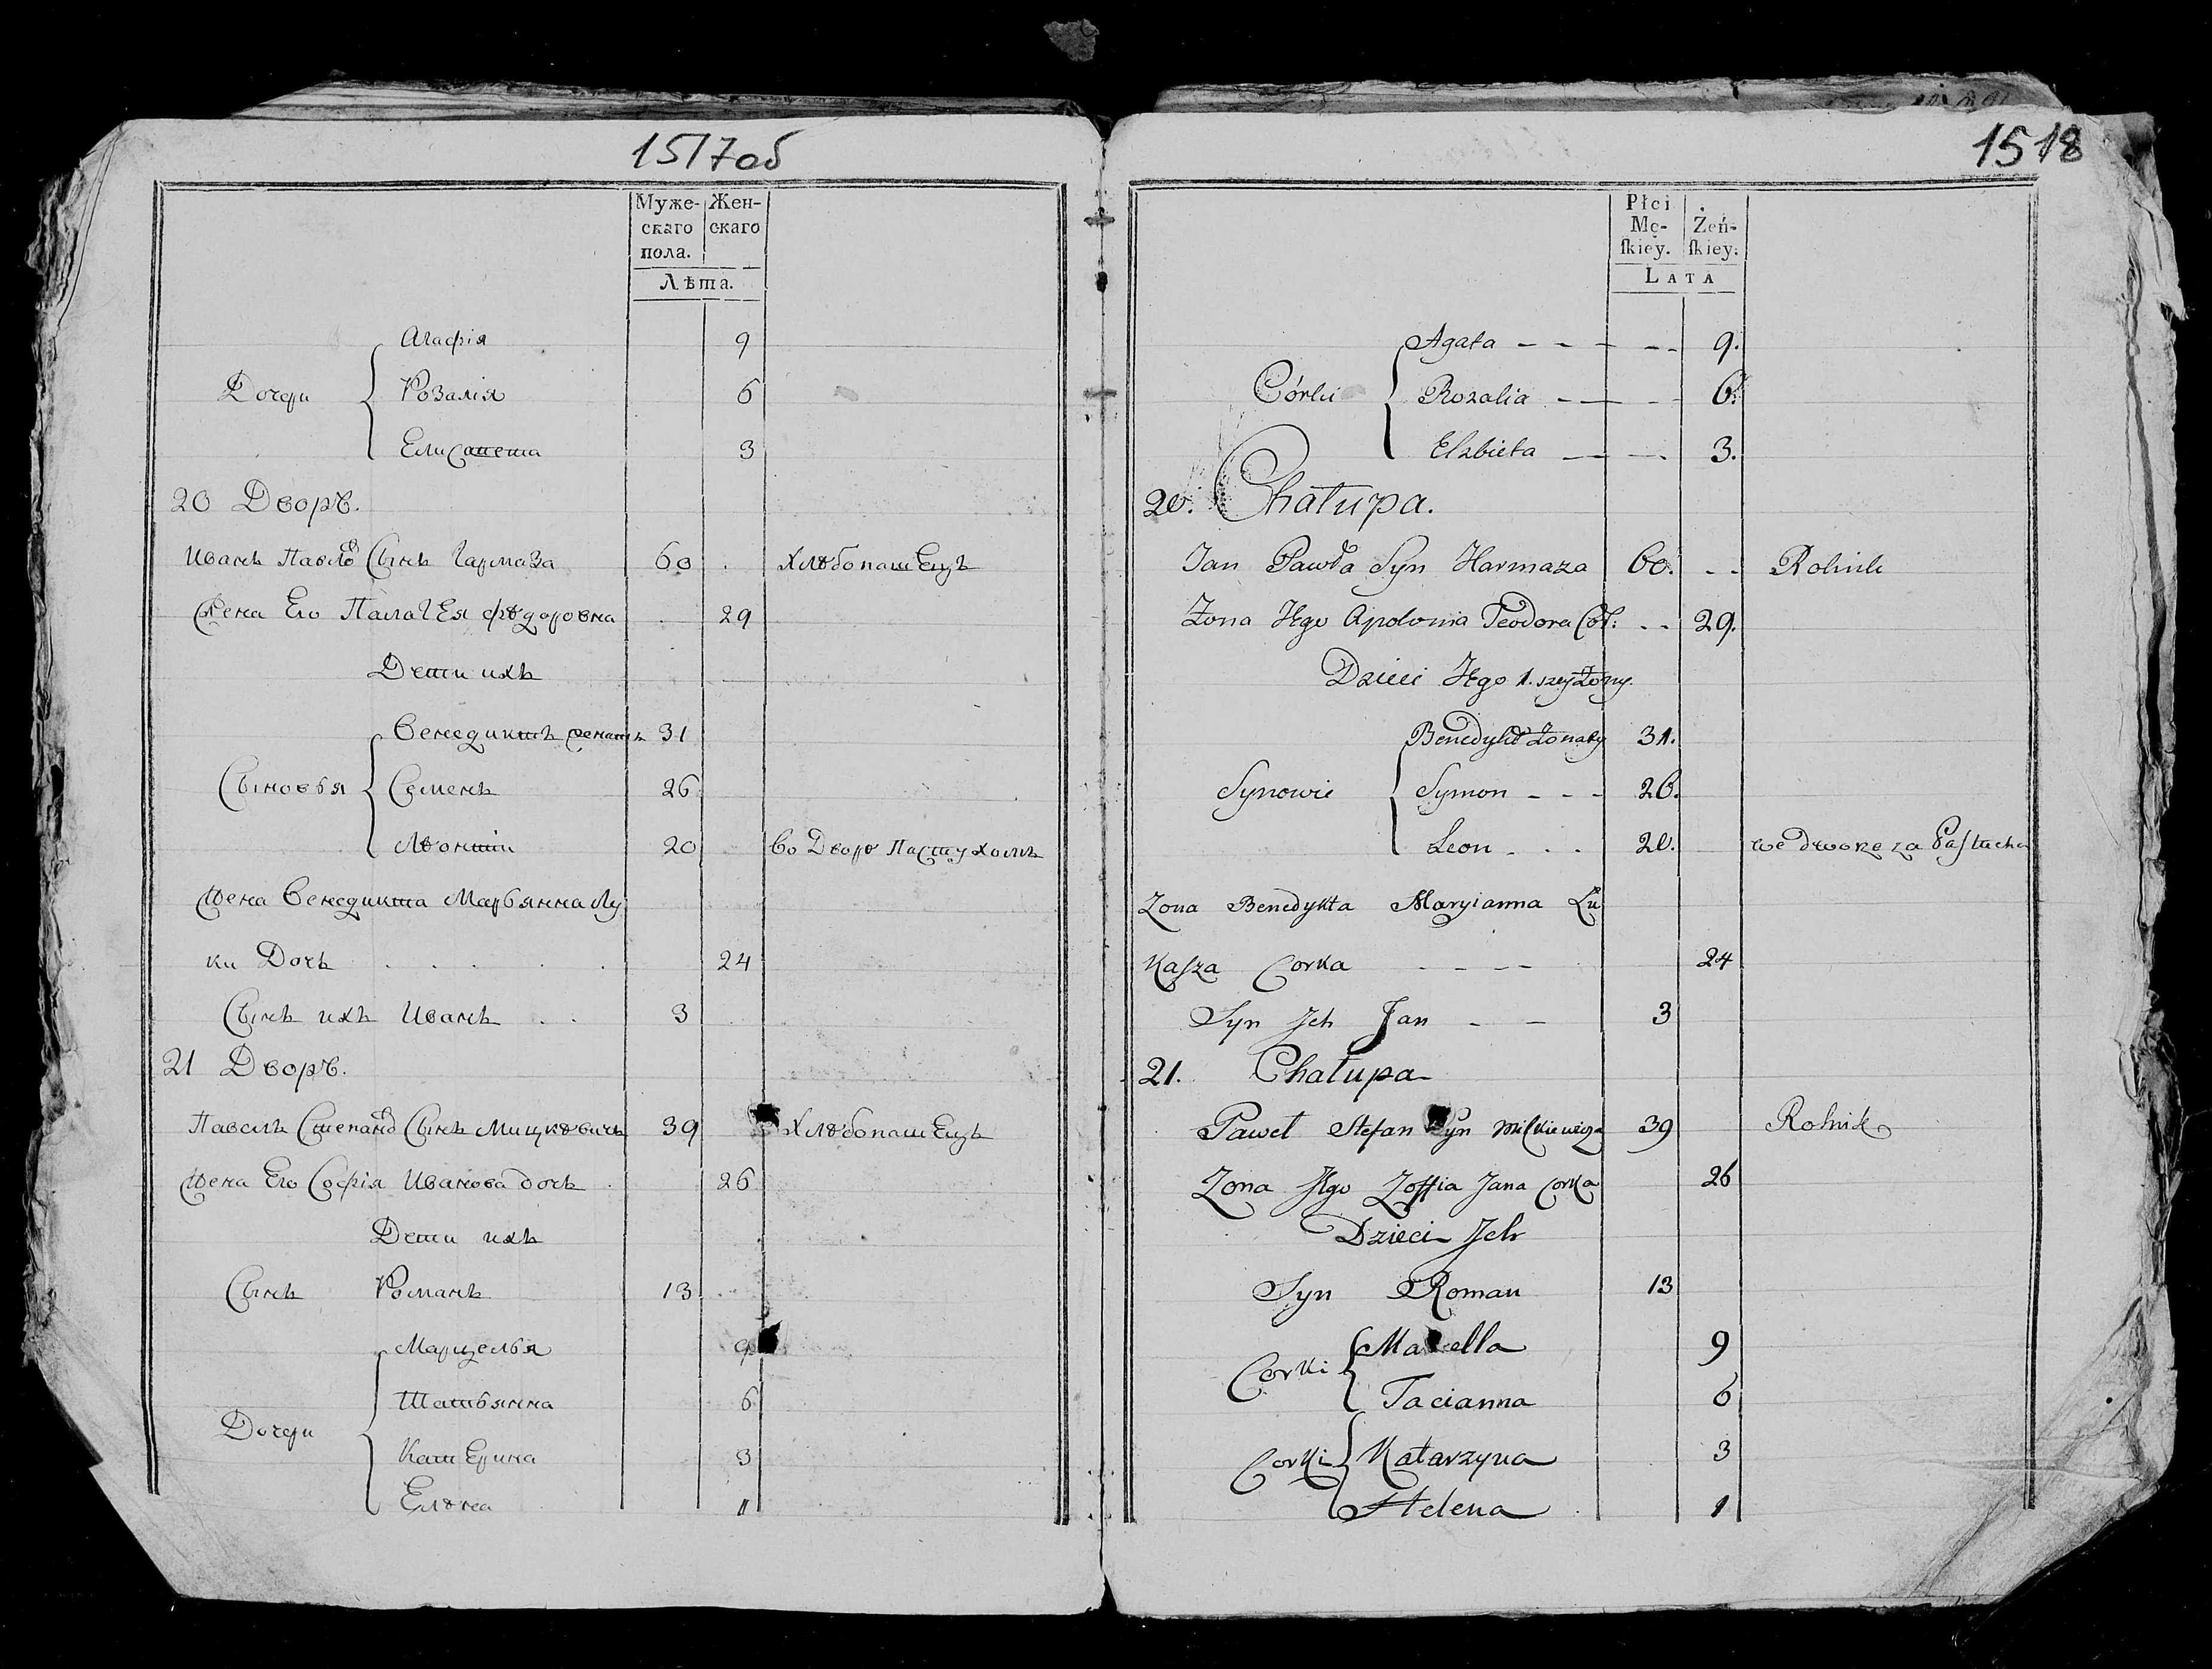 1517 об
Муже-
скаго
пола.
Жен-
скаго
Лѣта.
Агафія 9
Дочери Розалія 6
Елисавета 3
20 Дворъ.
Иванъ Павловъ Сынъ Гармаза 60 Хлѣбопашецъ
Жена Его Палагея Фѣдоровна 29
Дети ихъ
Венедиктъ женатъ 31
Сыновья Семенъ 26
Лѣонтій 20 во Дворѣ Пастухомъ
Жена Венедикта Марьянна Лу
ки Дочь 24
Сынъ ихъ Иванъ 3
21 Дворъ.
Павелъ Степановъ Сынъ Мицкѣвичъ 39 Хлѣбопашецъ
Жена Его Софія Иванова дочь 26
Дети ихъ
Сынъ Романъ 13
Марцелья 9
Татьянна 6
Дочери
Катерина 3
Елѣна 1
1518
Płci
Mę-
skiey.
Żeń-
skiey.
LATA
Agata 9.
Córki Rozalia 6.
Elzbieta 3.
20. Chałupa.
Jan Pawła Syn Harmaza 60. Rolnik
Żona Jego Apolonia Teodora Cór: 29.
Dzieci Jego 1. szey Żony.
Benedykt Żonaty 31.
Synowie Symon 26.
Leon 20. we dworze za Pastucha
Zona Benedykta Maryianna Łu
kasza Corka 24
Syn Jch Jan 3
21. Chałupa
Paweł Stefan Syn Mickiewicz 39 Rolnik
Zona Jego Zoffia Jana Corka 26
Dzieci Jch
Syn Roman 13
Corki Marcella 9
Tacianna 6
Corki Katarzyna 3
Helena 1